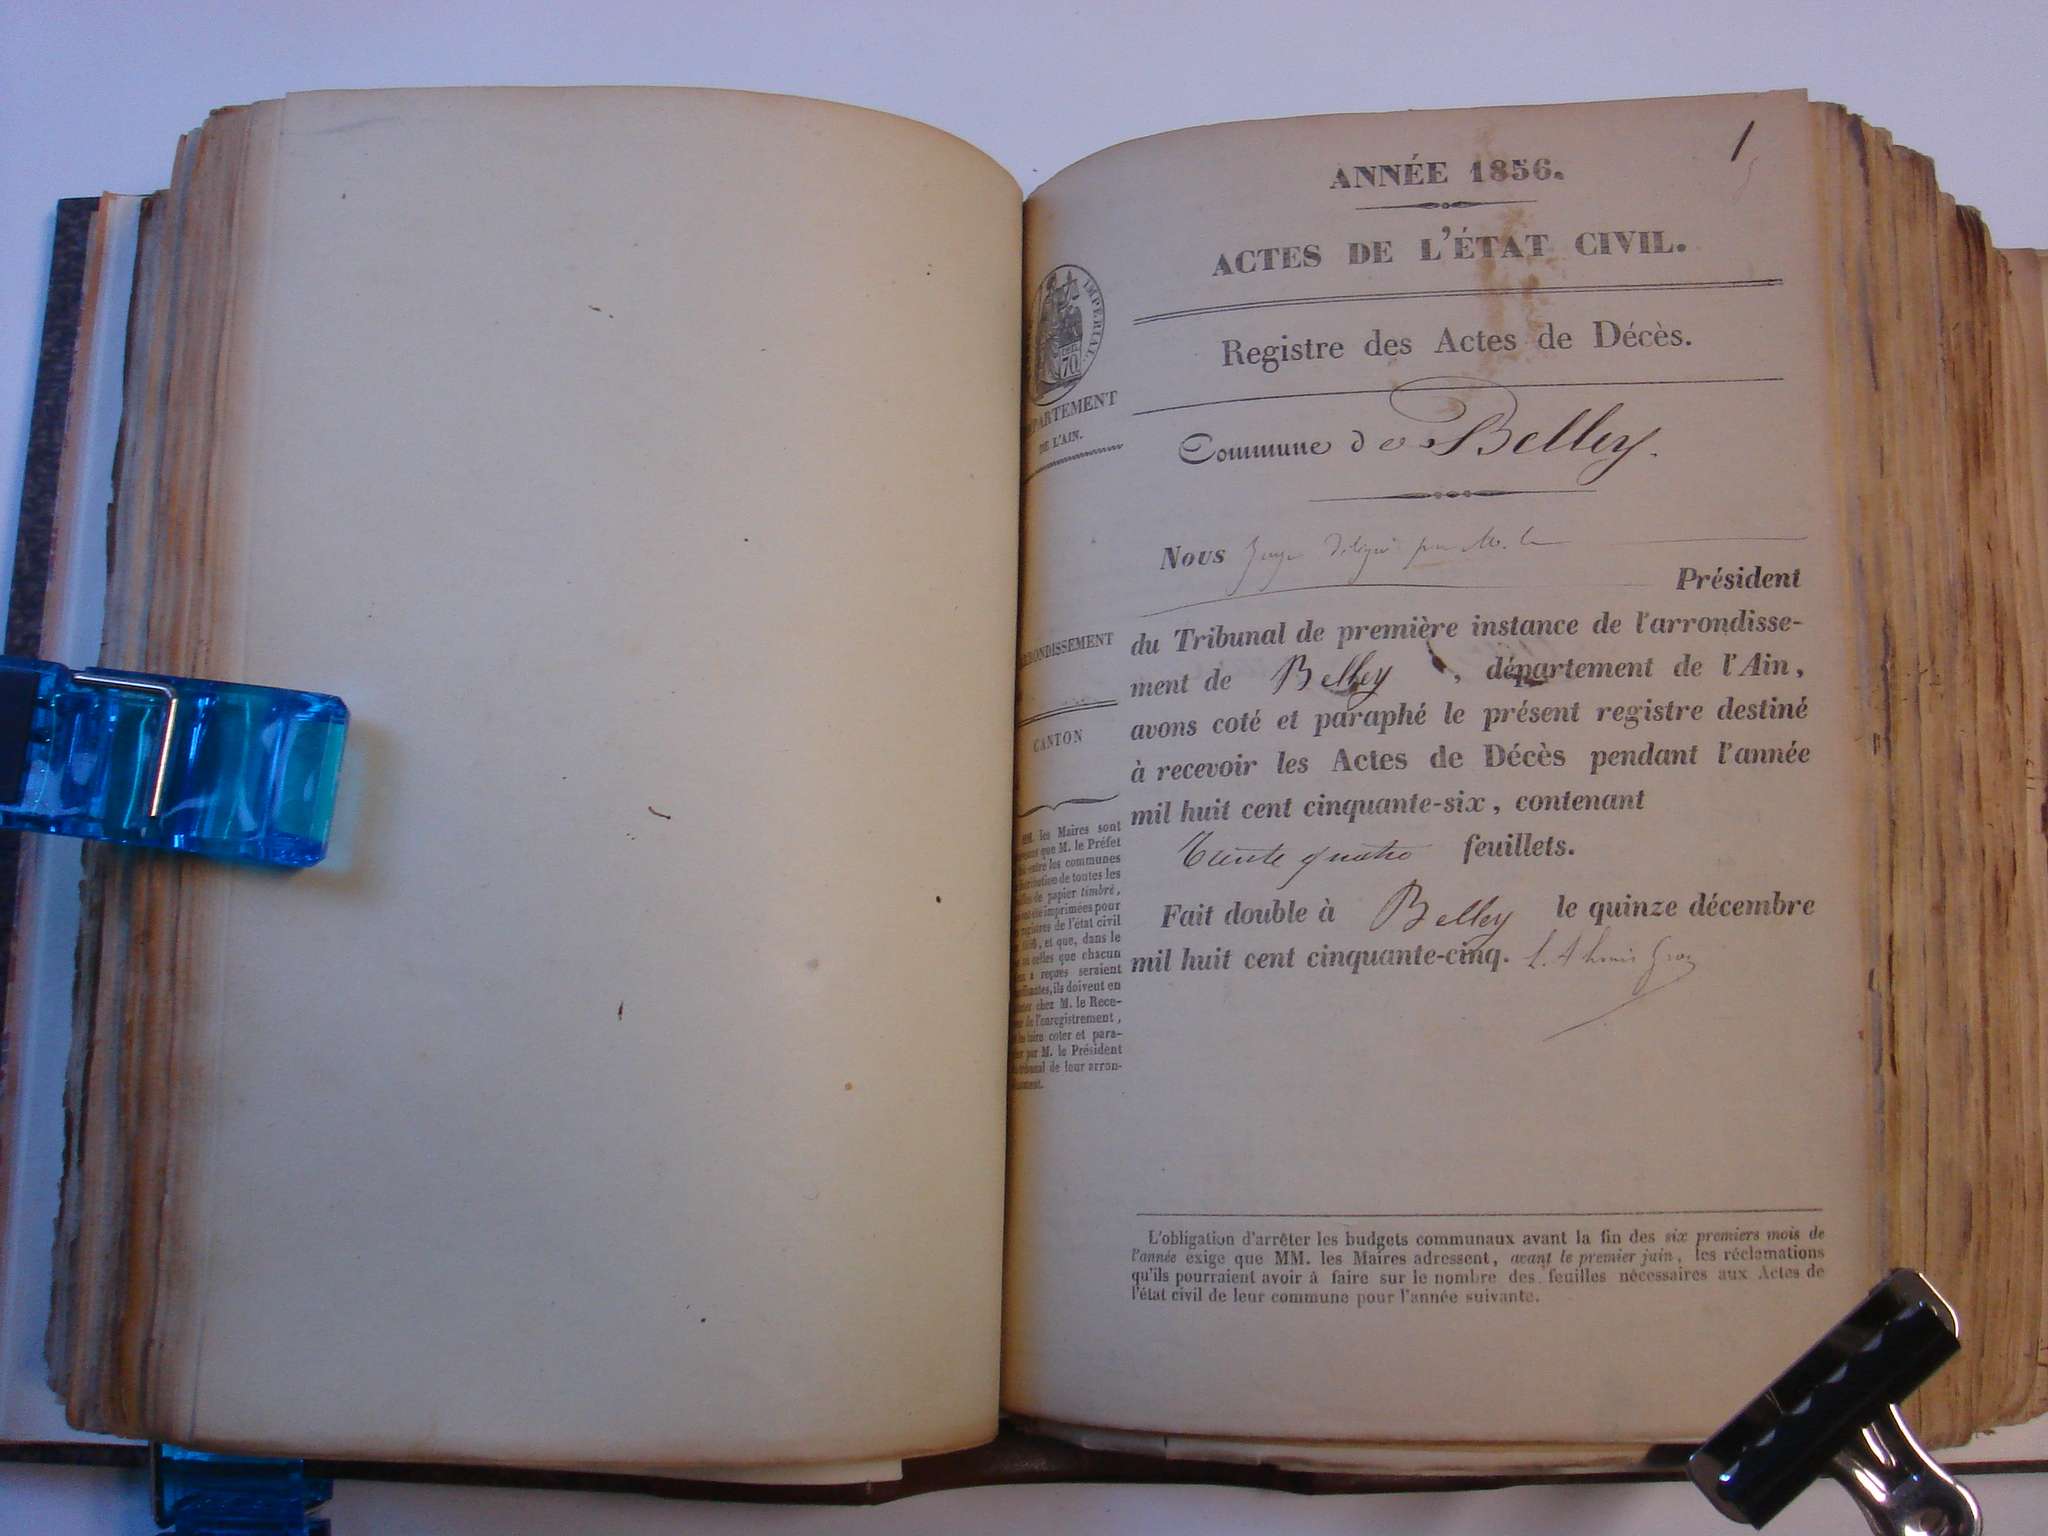 1
ANNÉE 1856.
ACTES DE L'ÉTAT CIVIL.
IMPÉRIAL.
70
DE L'AIN.
Registre des Actes de Décès.
Commune de Belley.
Nous Juge délégué par M. le
Président
du Tribunal de première instance de l'arrondisse-
ment de Belley, département de l'Ain,
avons coté et paraphé le présent registre destiné
à recevoir les Actes de Décès pendant l'année
mil huit cent cinquante-six, contenant
trente quatre feuillets.
Fait double à Belley le quinze décembre
mil huit cent cinquante-cinq.
CANTON
MM. les Maires sont
que M. le Préfet
entre les communes
de toutes les
de papier timbré,
été imprimées pour
registres de l'état civil
, et que, dans le
où celles que chacun
a reçues seraient
ils doivent en
chez M. le Rece-
de l'enregistrement,
les faire coter et para-
par M. le Président
tribunal de leur arron-
L'obligation d'arrêter les budgets communaux avant la fin des six premiers mois de
l'année exige que MM. les Maires adressent, avant le premier juin, les réclamations
qu'ils pourraient avoir à faire sur le nombre des feuilles nécessaires aux Actes de
l'état civil de leur commune pour l'année suivante.